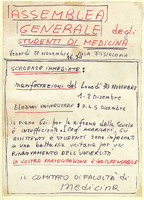 ASSEMBLEA
GENERALE degli
STUDENTI DI MEDICINA
Venerdì 28 novembre AULA FISIOLOGIA
16.30
SCADENZE IMMEDIATE:
MANIFESTAZIONE del Lunedì 30 NOVEMBRE
1-2 dicembre
ELEZIONI UNIVERSITARIE: 2-3 DICEMBRE
Il piano per la riforma della Scuola
è insufficiente. I prof. incaricati, gli
assistenti e studenti sono impegnati
in una battaglia unitaria per un
rinnovamento dell'università!
LA VOSTRA PARTECIPAZIONE È INDISPENSABILE
IL COMITATO DI FACOLTÀ di
Medicina